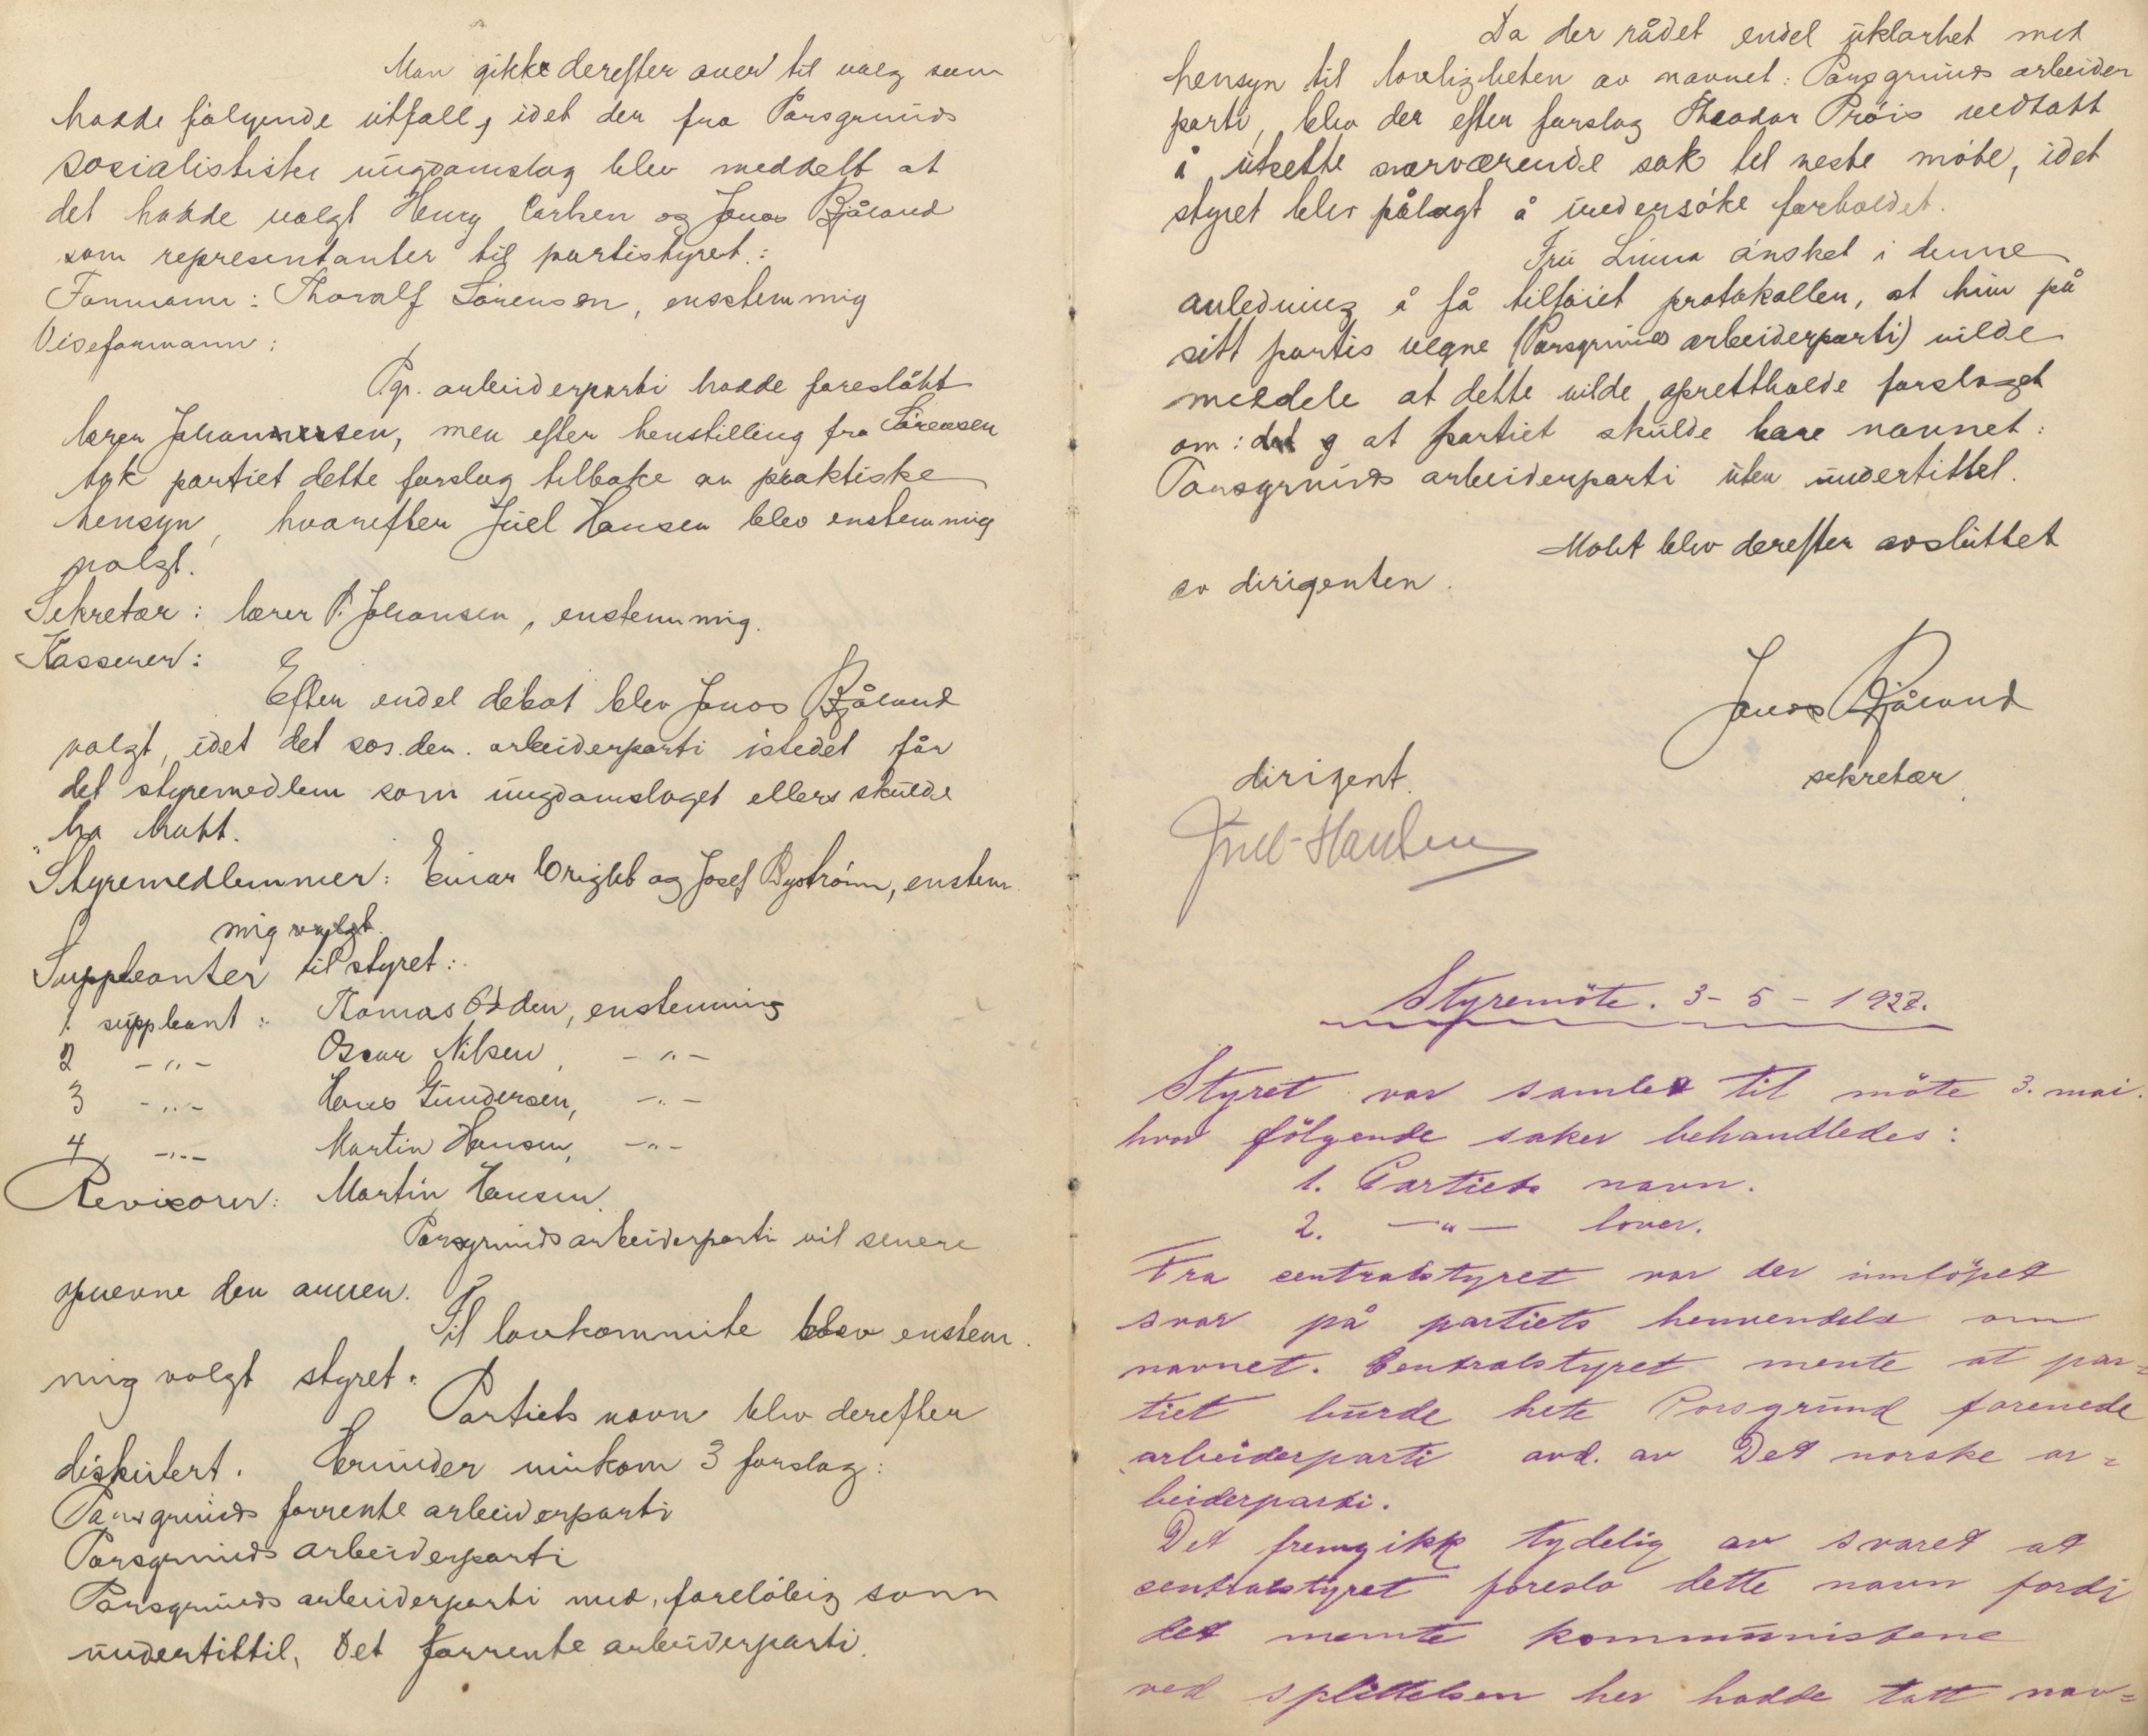 Man gikk derefter over til valg som
hadde følgende utfall, idet der fra Porsgrunds
sosialistiske ungdomslag blev meddelt at
det hadde valgt Henry Carlsen og Jonas Bjåland
som representanter til partistyret:
Formann: Thoralf Sørensen, enstemmig
Viseformann:
Pgr. arbeiderparti hadde foreslått
lærer Johannesen, men efter henstilling fra Sørensen
tok partiet dette forslag tilbake av praktiske
hensyn, hvorefter Juel Hansen blev enstemmig
valgt.
Sekretær: lærer P. Johansen, enstemmig.
Kasserer:
Efter endel debat blev Jonas Bjåland
valgt, idet det sos.dem. arbeiderparti istedet får
det styremedlem som ungdomslaget ellers skulde
ha hatt.
Styremedlemmer: Einar Wright og Josef Bystrøm, enstem
mig valgt.
Suppleanter til styret:
1. suppleant: Thomas Odden, enstemmig
2 -"- Oscar Nilsen, -"-
3 -"- Hans Gundersen, -"-
4 -"- Martin Hansen, -"-
Revisorer: Martin Hansen.
Porsgrunds arbeiderparti vil senere
opnevne den annen.
Til lovkommite blev enstem
mig valgt styret.
Partiets navn blev derefter
diskutert. Herunder innkom 3 forslag:
Porsgrunds forrente arbeiderparti
Porsgrunds arbeiderparti
Porsgrunds arbeiderparti med, foreløbig som
undertittil, Det forrente arbeiderparti.
Da der rådet endel uklarhet med
hensyn til lovligheten av navnet: Porsgrunds arbeider
parti, blev der efter forslag Theodor Prøis vedtatt
å utsette nærværende sak til neste møte, idet
styret blev pålagt å undersøke forholdet.
Fru Linna ønsket i denne
anledning å få tilføiet protokollen, at hun på
sitt partis vegne (Porsgrunds arbeiderparti) vilde
meddele at dette vilde oprettholde forslaget
om: at partiet skulde bare navnet:
Porsgrunds arbeiderparti uten undertittel.
Møtet blev derefter avsluttet
av dirigenten.
Jonas Bjåland
dirigent. sekretær.
Juel-Hansen
Styremöte. 3-5-1927.
Styret var samlet til möte 3. mai.
hvor fölgende saker behandledes:
1. Partiets navn.
2. -"- lover.
Fra centralstyret var der innlöpet
svar på partiets henvendelse om
navnet. Centralstyret mente at par=
tiet burde hete Porsgrund forenede
arbeiderparti avd. av Det norske ar=
beiderparti.
Det fremgikk tydelig av svaret at
centralstyret foreslo dette navn fordi
det mente kommunistene
ved splittelsen her hadde tatt nav=